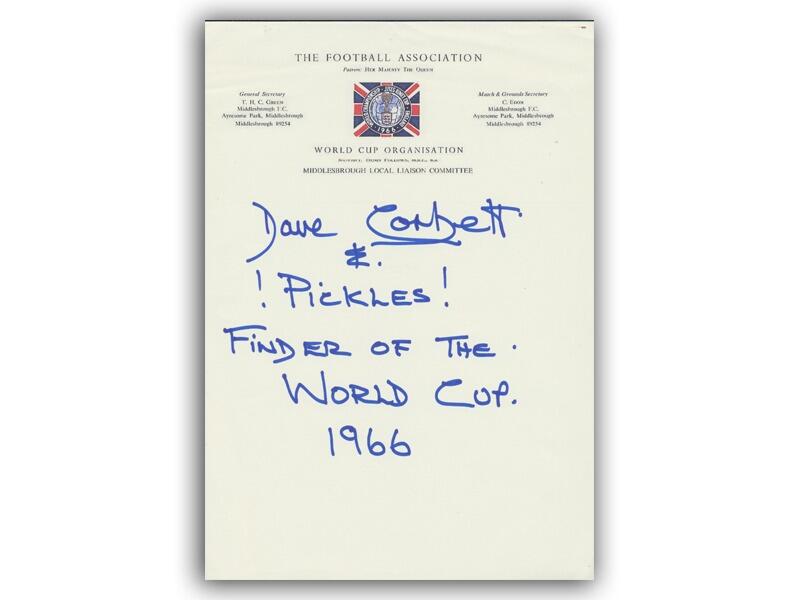 THE FOOTBALL ASSOCIATION
Patron: HER MAJESTY THE QUEEN
General Secretary
T. H. C. GREEN
Middlesbrough F.C.
Ayresome Park, Middlesbrough
Middlesbrough 89254
Match & Grounds Secretary
C. EDON
Middlesbrough F.C.
Ayresome Park, Middlesbrough
Middlesbrough 89254
1966
WORLD CUP ORGANISATION
MIDDLESBROUGH LOCAL LIAISON COMMITTEE
Dave Corbett
&.
! PiCKLES !
FiNDER OF THE .
WORLD CUP.
1966